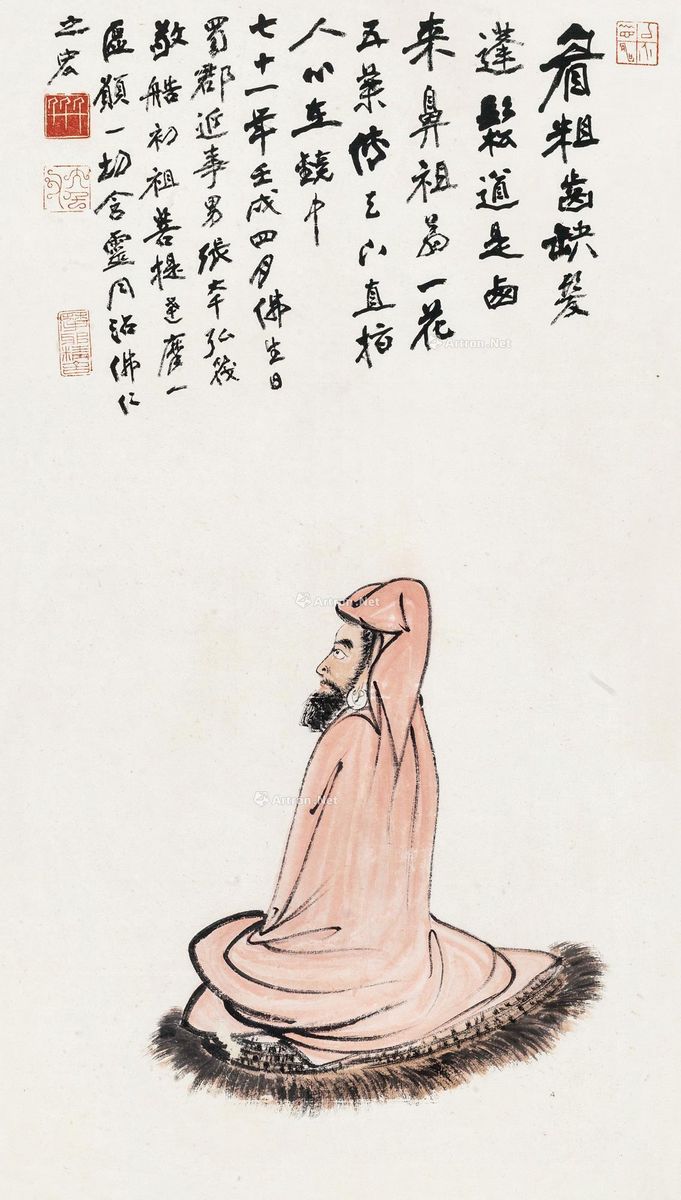 眉粗齒缺髮
蓬鬆道是卥
來鼻祖翁一花
五葉傳天下直指
人心在鏡中
七十一年壬戌四月佛生日
蜀郡近事男張大千弘筏
敬艁初祖菩提達摩一
區願一切含靈同沾佛仁
之宏
Artron.Net
Artron.Net
Artron.Net